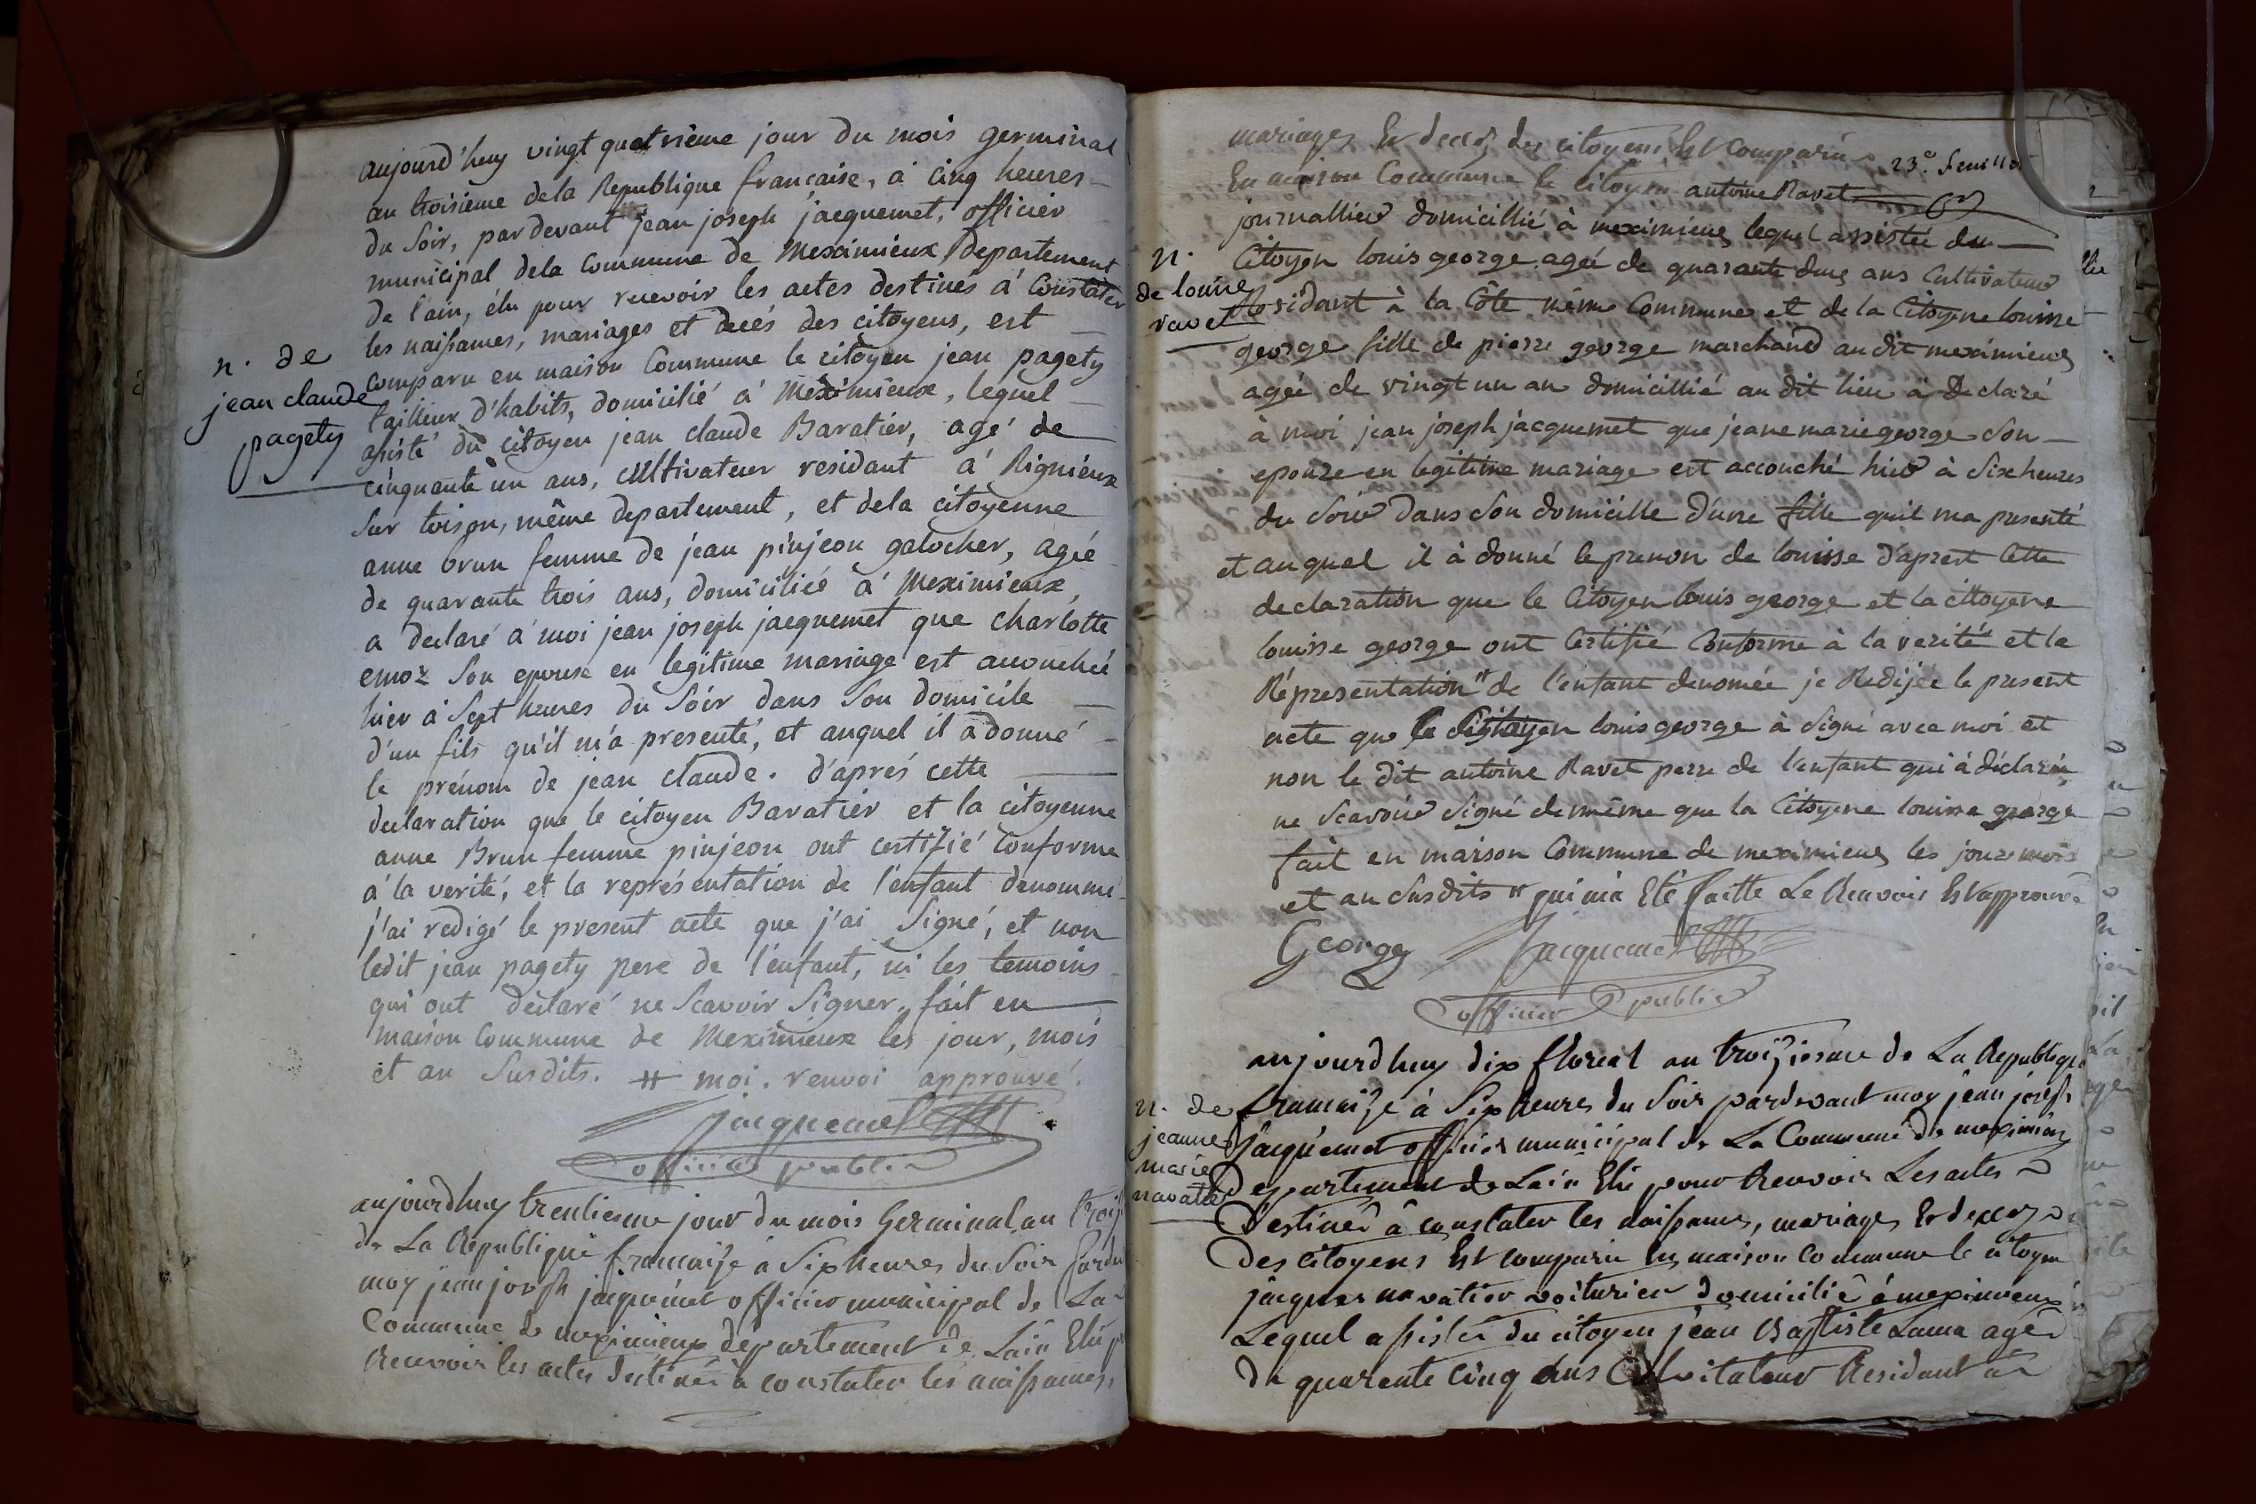 aujourd'huy vingt quatrième jour du mois germinal
an troisieme dela Republique francaise, à cinq heures
du soir, pardevant jean joseph jacquemet, officier
municipal dela commune de Meximieux departement
de l'ain, élu pour recevoir les actes destinés à constater
les naissances, mariages et decés des citoyens, est
n. de
jean claude
pagety
comparu en maison commune le citoyen jean pagety
tailleur d'habits, domicilié à Meximieux, lequel
assisté du citoyen jean claude Baratier, agé de
cinquante un ans, cultivateur residant à Rignieux
sur toison, même departement, et dela citoyenne
anne brun femme de jean pinjeon galocher, agée
de quarante trois ans, domiciliée à Meximieux,
a declaré à moi jean joseph jacquemet que charlotte
emoz son epouse en legitime mariage est accouchée
hier à sept heures du soir dans son domicile
d'un fils qu'il m'a presenté, et auquel il a donné
le prénom de jean claude. d'aprés cette
declaration que le citoyen Baratier et la citoyenne
anne Brun femme pinjeon ont certifié conforme
à la verité, et la représentation de l'enfant denommé
j'ai redigé le present acte que j'ai signé, et non
ledit jean pagety pere de l'enfant, ni les temoins
qui ont declaré ne scavoir signer, fait en
maison commune de Meximieux les jour, mois
et an susdits. # moi. renvoi approuvé.
jacquemet
officier public
aujourdhuy trentiesme jour du mois Germinal an troiz
de La Republique francaize à Six heures du Soir
moy jean joseph jacquemet officier municipal de La
Commune de meximieux departement de Lain Elu
Recevoir les actes destinés à constater les naissances,
mariages Et decéz des citoyens Est comparu
23e. feuillet
En maison Commune le citoyen antoine Ravet
journallier domicillié à meximieux lequel assistée du
n.
de louise
ravet
Citoyen louis george agée de quarante deux ans Cultivateur
Residant à la Côte même Commune et de la Citoyene louisse
george fille de pierre george marchand audit meximieux
agée de vingt un an domicillié au dit lieu à Declaré
à moi jean joseph jacquemet que jeane marie george son
epouze en legitime mariage est accouché hier à Six heures
du Soir dans Son domicille d'une fille quil ma presenté
et auquel il à donné le prenon de louisse d'aprest Cette
declaration que le Citoyen louis george et la cittoyene
louisse george ont Certifié Conforme à la verité et la
Représentation # de l'enfant denomée je Redijée le present
acte que le Citoyen louis george à signé avec moi et
non le dit antoine Ravet pere de l'enfant qui à déclarée
ne Scavoir signé de même que la Citoyene louisse george
fait en maison Commune de meximieux les jour mois
et an susdits # qui m'a Eté faitte Le Renvoir Est approuvé
George jacquemet
officier public
aujourdhuy dix floreal an troiziesme de La Republique
n. de
jeanne
marie
navatte
francaize à Six heures du Soir pardevant moy jean joseph
jacquemet officier municipal de La Commune de meximieux
Departement de Lain Elu pour Recevoir Les actes
Destinés à constater les naissances, mariages Et decez
Des citoyens Est comparu En maison commune le citoyen
jacques navatier voiturier domicilié à meximieux
Lequel assisté du citoyen jean Baptiste Lama agé
de quarente cinq ans Cultivateur Residant à